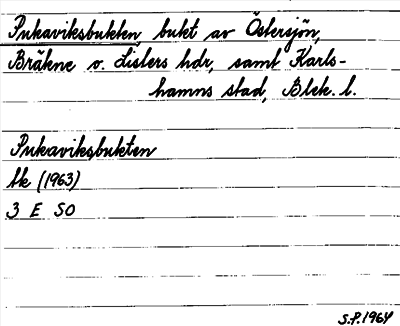 Pukaviksbukten, bukt av Östersjön,
Bräkne o. Listers hdr, samt Karls-
hamns stad, Blek. l.
Pukaviksbukten
tk (1963)
3 E SO
S.P. 1964